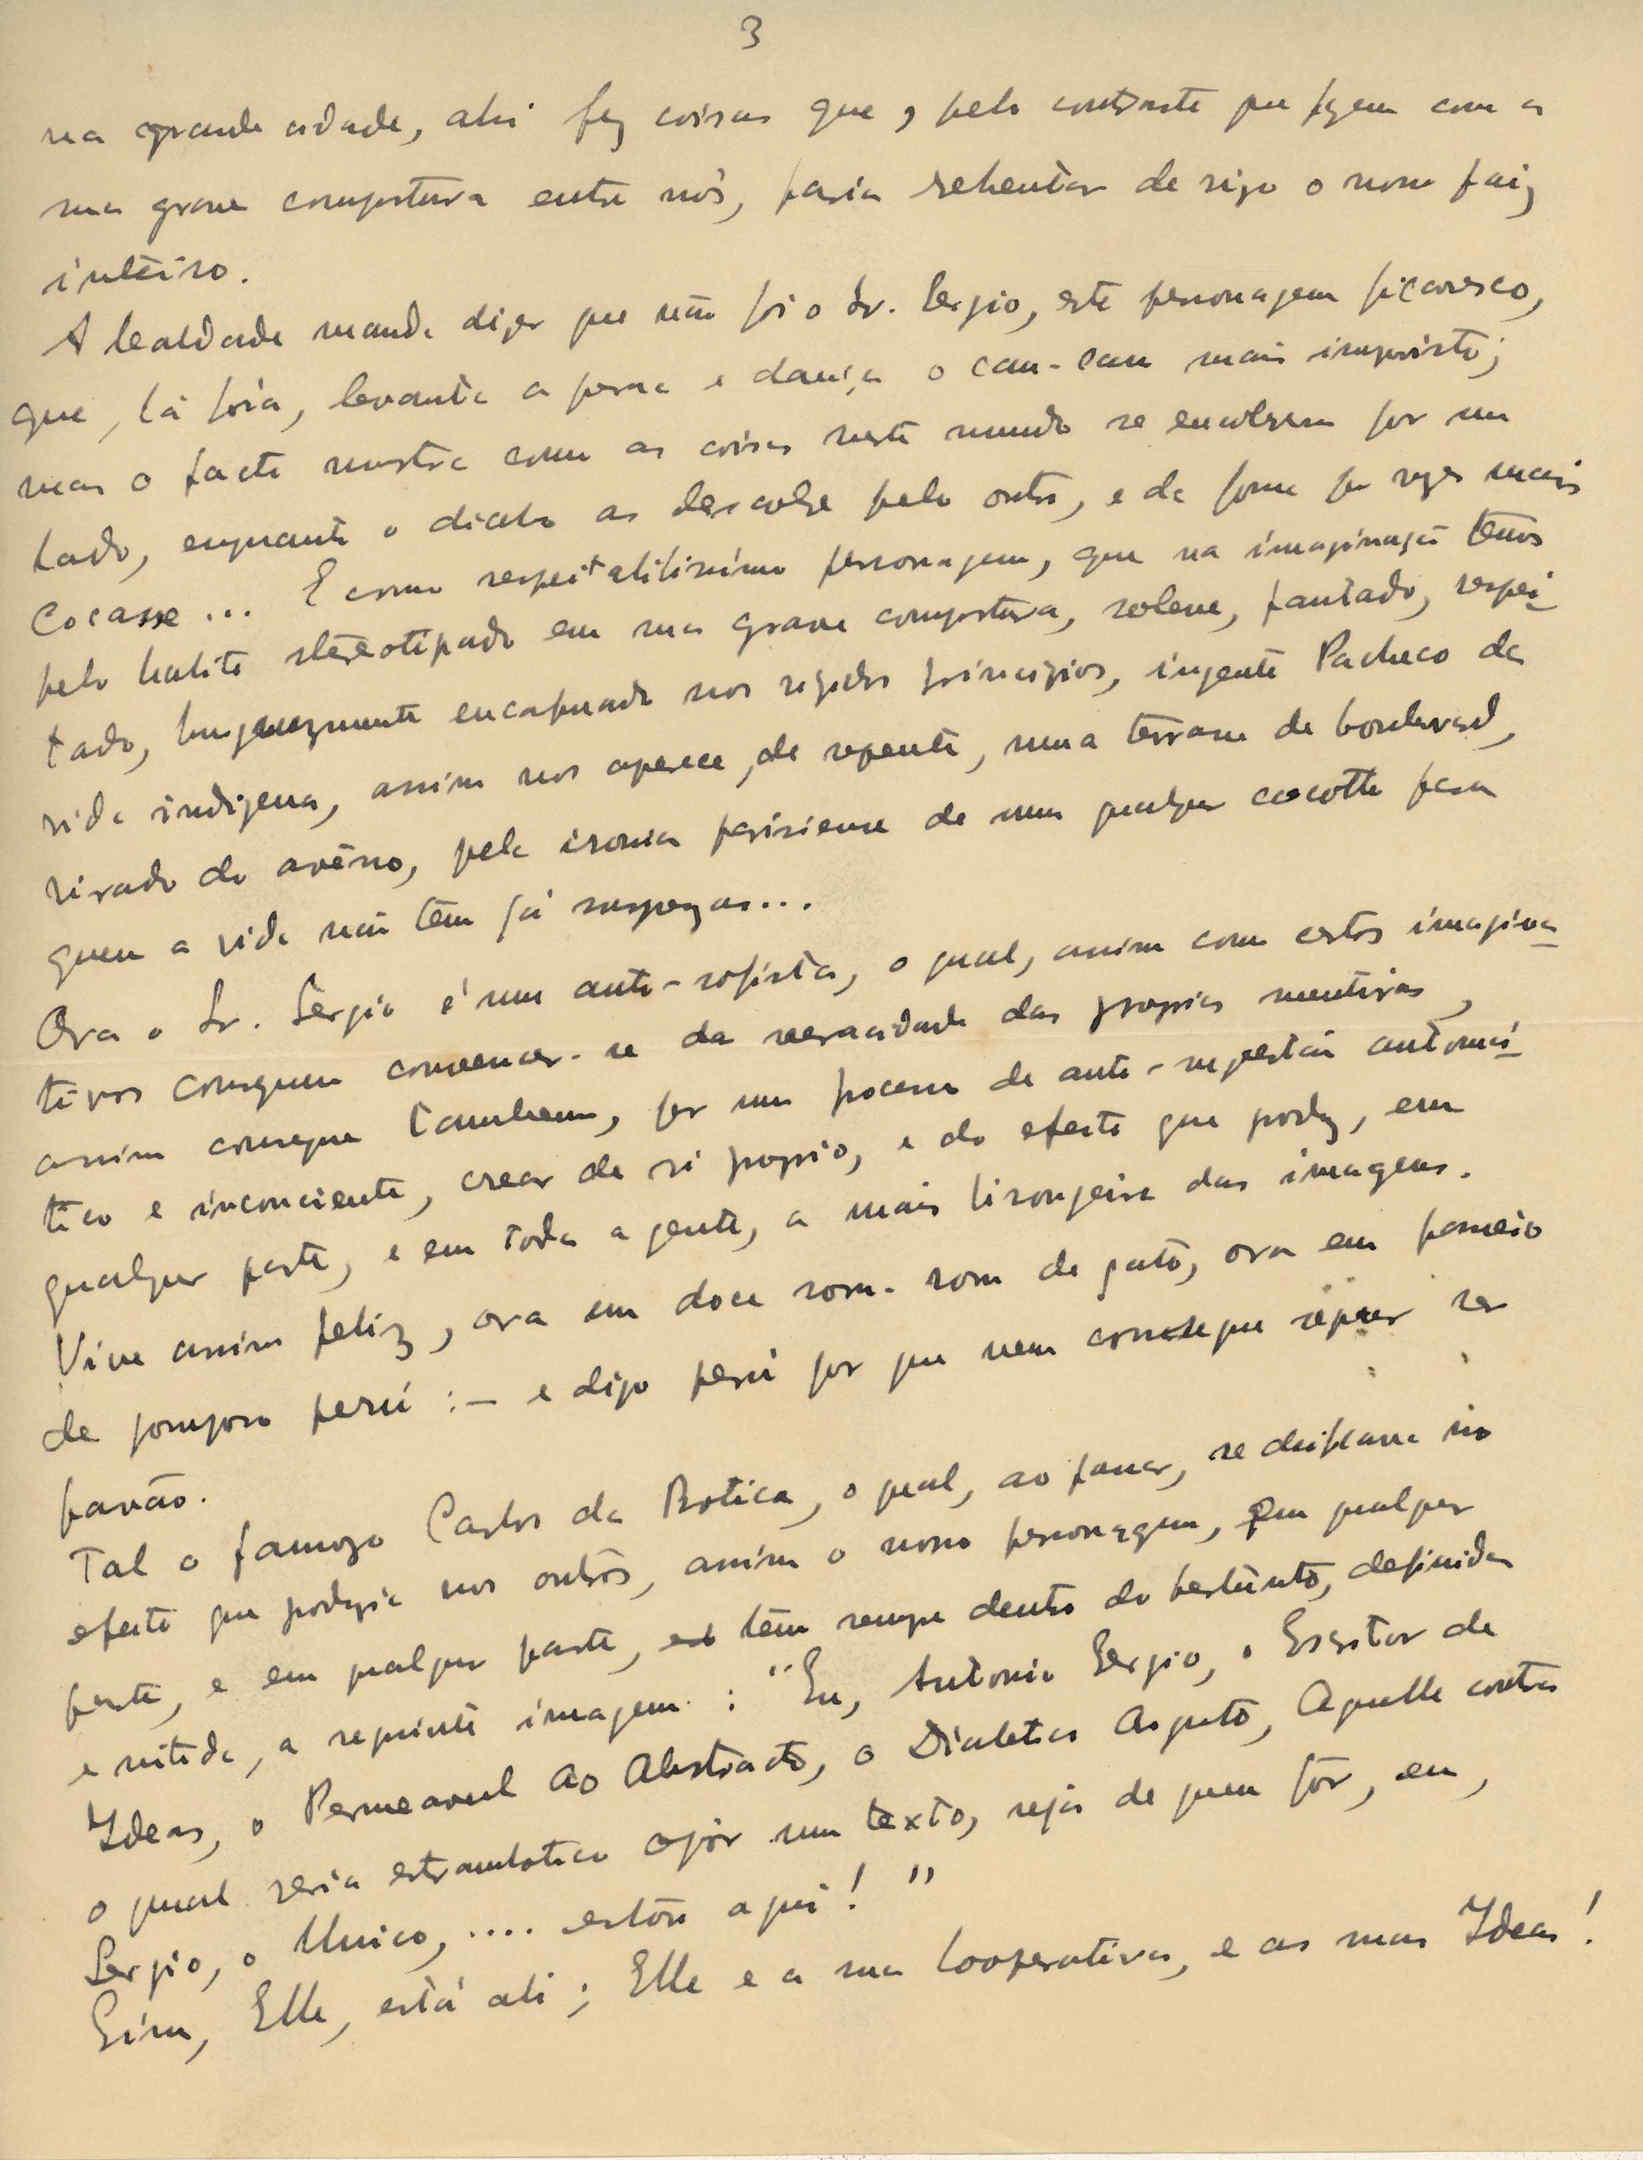 3
na grande cidade, ahi faz coisas que, pelo contraste que fazem com a
sua grave compostura entre nós, faria rebentar de rizo o nosso paiz
inteiro.
A lealdade manda dizer que não foi o Sr. Sergio, este personagem picaresco,
que, lá fóra, levanta a perna e dança o can-can mais imprevisto;
mas o facto mostra como as coisas neste mundo se encobrem por um
lado, enquanto o diabo as descobre pelo outro, e da forma por vezes mais
Cocasse... E como respeitabilissimo personagem, que na imaginação temos
pelo habito stereotipado em sua grave compostura, solene, pautado, respei-
tado, burguezmente encafuado nos rigidos principios, ingente Pacheco da
vida indigena, assim nos aparece, de repente, numa terrasse de boulevard,
virado do avêsso, pela ironia parisiense de uma qualquer cocotte para
quem a vida não têm já surprezas...
Ora o Sr. Sergio é um auto-sofista, o qual, assim como certos imagina-
tivos conseguem convencer-se da veracidade das proprias mentiras,
assim consegue tambem, por um processo de auto-sugestão automá-
tico e inconciente, crear de si proprio, e do efeito que produz, em
qualquer parte, e em toda a gente, a mais lisongeira das imagens.
Vive assim feliz, ora em doce rom-rom de gato, ora em passeio
de pomposo perú: – e digo perú por que nem consegue sequer ser
pavão.
Tal o famozo Carlos da Botica, o qual, ao passar, se deificava no
efeito que produzia nos outros, assim o nosso personagem, em qualquer
parte, e em qualquer parte, têm sempre dentro do bestunto, definida
e nitida, a seguinte imagem: "Eu, Antonio Sergio, o Escritor de
Ideas, o Permeavel ao Abstracto, o Dialetico Arguto, Aquelle contra
o qual seria estrambotico opôr um texto, seja de quem fôr, eu,
Sergio, o Unico,.... estou aqui!"
Sim, Elle, está ali; Elle e a sua Cooperativa, e as suas Ideas!